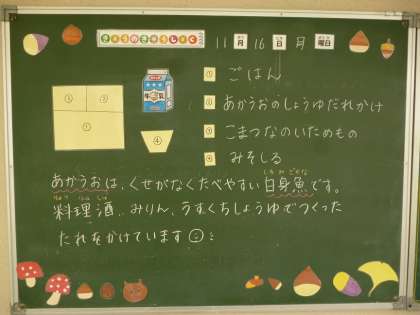 きょうのきゅうしょく
11月16日月曜日
① ごはん
② あかうおのしょうゆだれかけ
③ こまつなのいためもの
④ みそしる
牛乳
② ③
①
④
あかうおは、くせがなくたべやすい白身魚です。
料理酒、みりん、うすくちしょうゆでつくった
たれをかけています